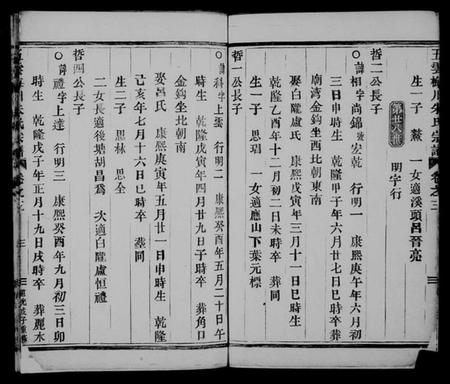 五雲梅川朱氏宗譜 卷之三
生一子 熬 一女適溪頭呂晉亮
第廿八
明字行
哲二公長子
諱相字尚錦 宏乾 行明一 康熙庚午年六月初
三日申時生 乾隆甲子年六月廿七日申時卒 葬
廟湾金鈎坐西北朝東南
娶白隴盧氏 康熙辛未年三月十一日巳時生
乾隆乙酉年十月初二日未時卒 葬
生一子 思瑞 一女適應山下葉元標
哲一公長子
諱科字上 行明二 康熙癸酉年五月二十日午
時生 乾隆戊寅年四月十九日子時卒 葬角口
金鈎坐北朝南
娶呂氏 康熙庚寅年五月廿一日申時生 乾隆
己亥年七月十六日巳時卒 葬同
生二子 思林 思全
二女長適後塘胡昌爲 次適白隴盧恒禮
哲四公長子
諱禮字上達 行明三 康熙癸酉年九月初三日卯
時生 乾隆戊子年正月十九日戌時卒 葬麗水